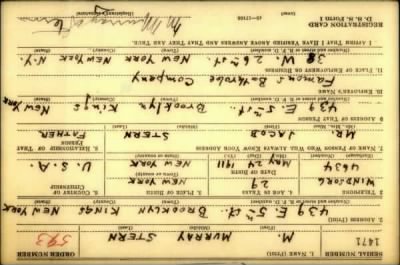 1471 M. MURRAY STERN 593
1. NAME (Print) ORDER NUMBER
(First) (Middle) (Last)
439 E. 5th St. BROOKLYN KINGS NEW YORK
2. ADDRESS (Print)
3. TELEPHONE 4. AGE IN YEARS 5. PLACE OF BIRTH 6. COUNTRY OF CITIZENSHIP
WINDSOR 6 29 NEW YORK
4634 DATE OF BIRTH
MAY 24 1911 U.S.A.
7. NAME OF PERSON WHO WILL ALWAYS KNOW YOUR ADDRESS 8. RELATIONSHIP OF THAT PERSON
MR. JACOB STERN FATHER
9. ADDRESS OF THAT PERSON
439 E. 5th St. BROOKLYN KINGS NEW YORK
10. EMPLOYER'S NAME
FAMOUS BATHROBE COMPANY
11. PLACE OF EMPLOYMENT OR BUSINESS
38 W. 26th St. NEW YORK N.Y.
I AFFIRM THAT I HAVE VERIFIED ABOVE ANSWERS AND THAT THEY ARE TRUE.
REGISTRATION CARD
D. S. S. Form 1
M Murray Stern